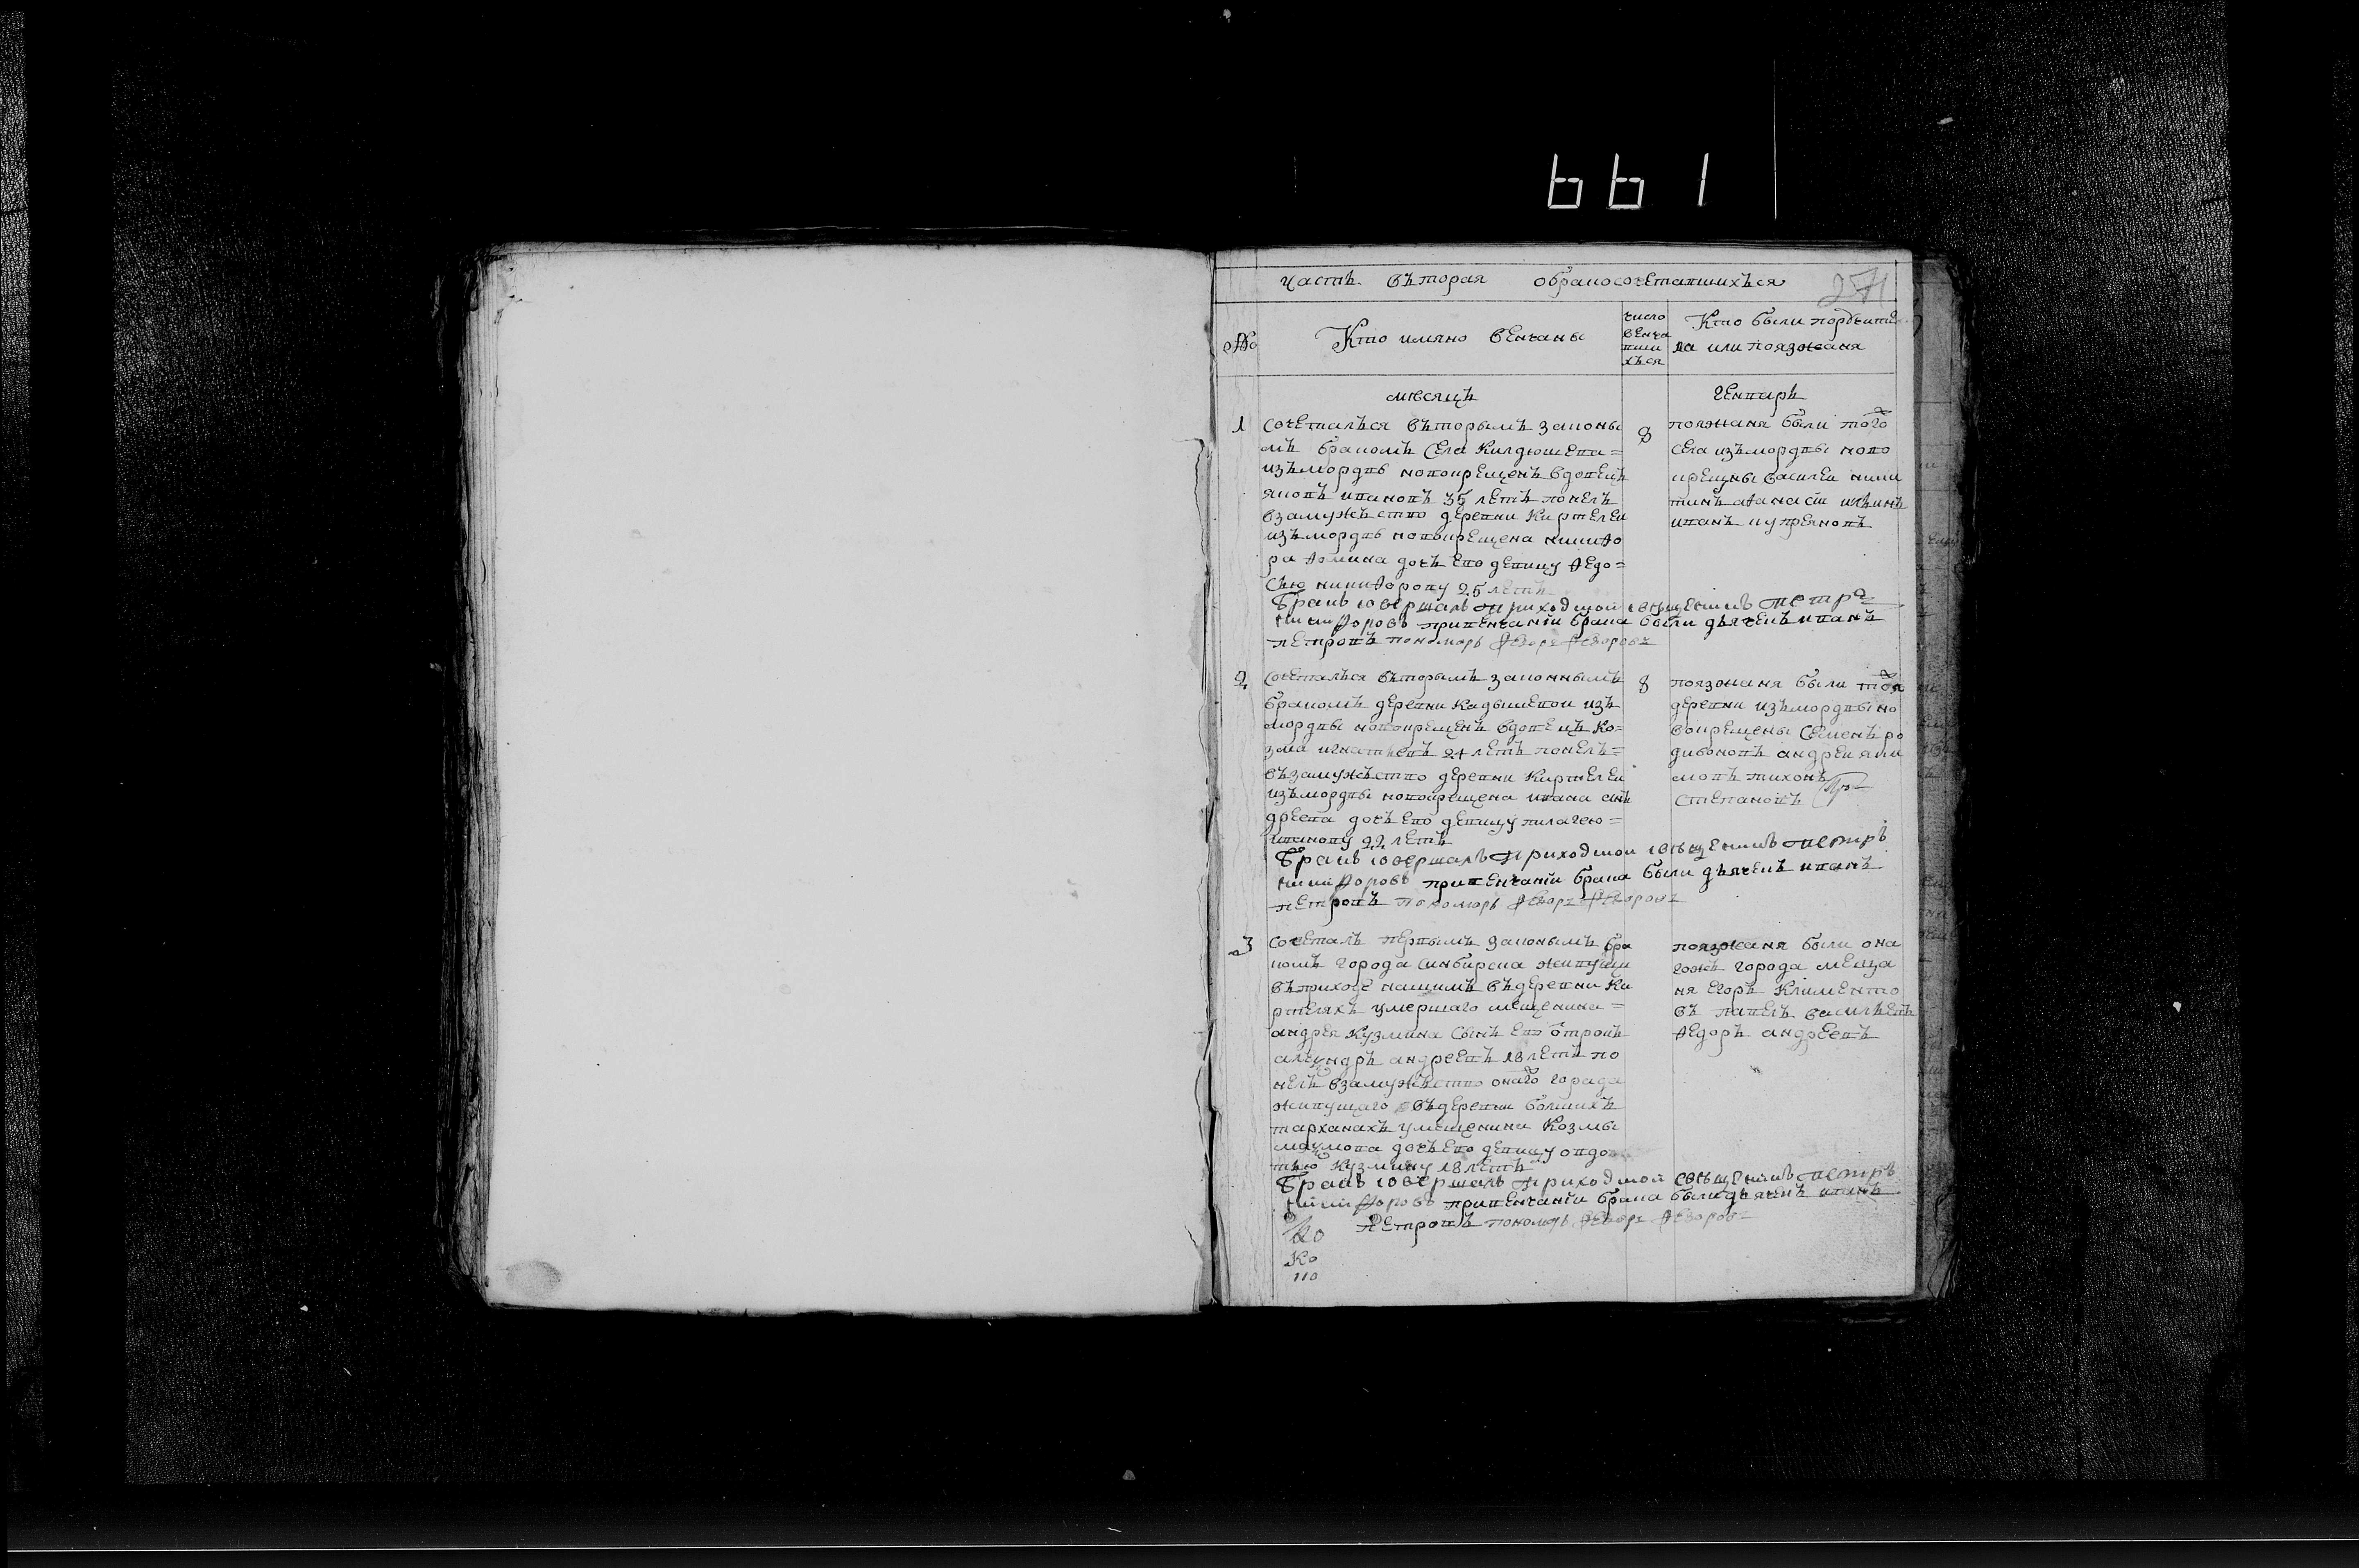 661
часть вторая о бракосочетавшихъся
271
№
Кто имяно венчаны
число венча вши хъся
Кто были поручите
ла или поязжаня
месяцъ
генварь
1
сочеталъся въторымъ законы
мъ бракомъ села Килдюшева=
изъмордвъ новокрещенъ вдовецъ
яковъ ивановъ 35 летъ понелъ
взамужъство деревни Киртелеи
изъмордвъ новокрещена никифо
ра фомина дочь ево девицу федо=
сью никифорову 25 летъ
8
поязжаня были того
села изъмордвы ново
крещны василеи ники
тинъ афанасiи илъинъ
иванъ купреяновъ
Бракъ совершалъ приходской священникъ петръ
никифоровъ привенчанiи брака были дьячекъ иванъ
петровъ пономарь федоръ федоровъ
2
сочеталъся въторымъ законнымъ
бракомъ деревни Кадышевои изъ
мордвы новокрещенъ вдовецъ Ко=
зма игнатьевъ 24 летъ понелъ=
възамужъство деревни Киртелеи
изъмордвы новокрещена ивана ан
дреева дочь ево девицу пилагею=
иванову 22 летъ
8
поязжаня были тоя
деревни изъмордвы но
вокрещены Семенъ ро
дивоновъ андреи яки
мовъ тихонъ
степановъ
Бракъ совершалъ приходской священникъ петръ
никифоровъ привенчанiи брака были дьячекъ иванъ
петровъ пономарь федоръ федоровъ
3
сочеталъ первымъ законымъ бра
комъ города синбирска живущи
въприходе нашимъ въдеревни Ки
ртеляхъ умершаго мещенина=
андрея Кузмина сынъ ево отрокъ
алеѯндръ андреевъ 18 летъ по
нелъ взамужъство онаго города
живущаго въдеревни болшихъ
тарханахъ умещенина Козмы
маѯимова дочь ево девицу овдо
тью кузмину 18 летъ
поязжаня были она
гожъ города меща
ня егоръ Клименто
въ павелъ васильевъ
федоръ андреевъ
Бракъ совершалъ приходской священникъ петръ
никифоровъ привенчанiи брака были дьячекъ иванъ
петровъ пономарь федоръ федоровъ
Ко
110